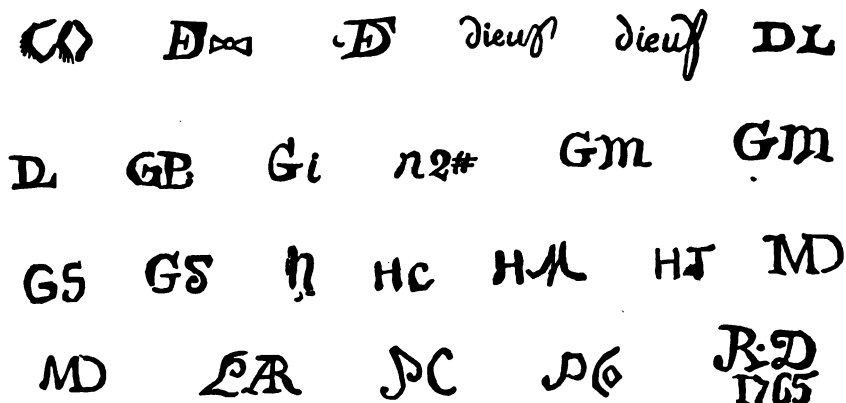 E E dieuſ dieuſ DL
DL GB Gi n2# GM GM
GS GS N Hc HM HJ MD
MD LAR PC P R·D
1765